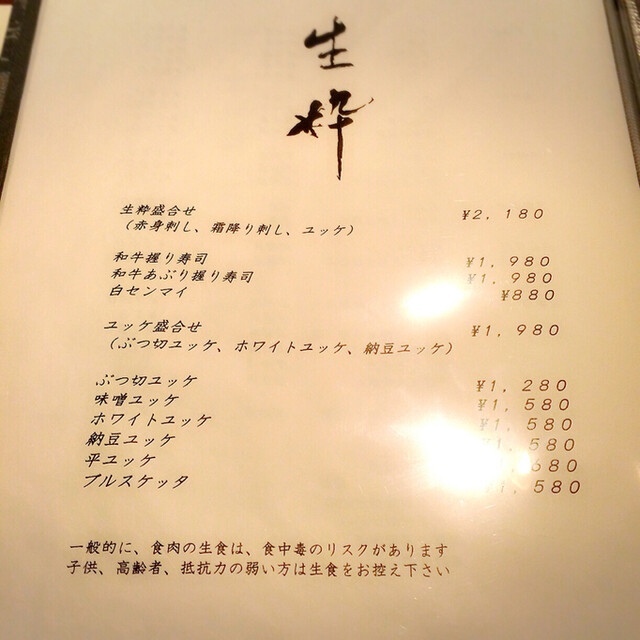 生
粋
生粋盛合せ ¥2,180
(赤身刺し、霜降り刺し、ユッケ)
和牛握り寿司 ¥1,980
和牛あぶり握り寿司 ¥1,980
白センマイ ¥880
ユッケ盛合せ ¥1,980
(ぶつ切ユッケ、ホワイトユッケ、納豆ユッケ)
ぶつ切ユッケ ¥1,280
味噌ユッケ ¥1,580
ホワイトユッケ ¥1,580
納豆ユッケ ¥1,580
平ユッケ 680
ブルスケッタ 1,580
一般的に、食肉の生食は、食中毒のリスクがあります
子供、高齢者、抵抗力の弱い方は生食をお控え下さい